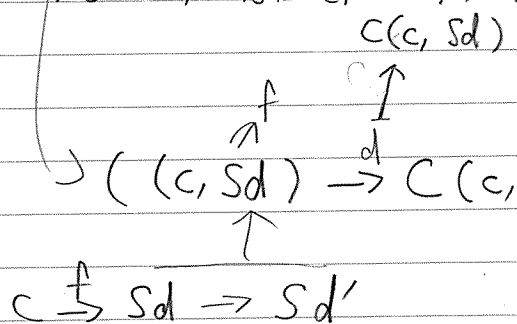 C(c, Sd)
f
d
C(c, Sd) → C(c,
c f→ Sd → Sd'